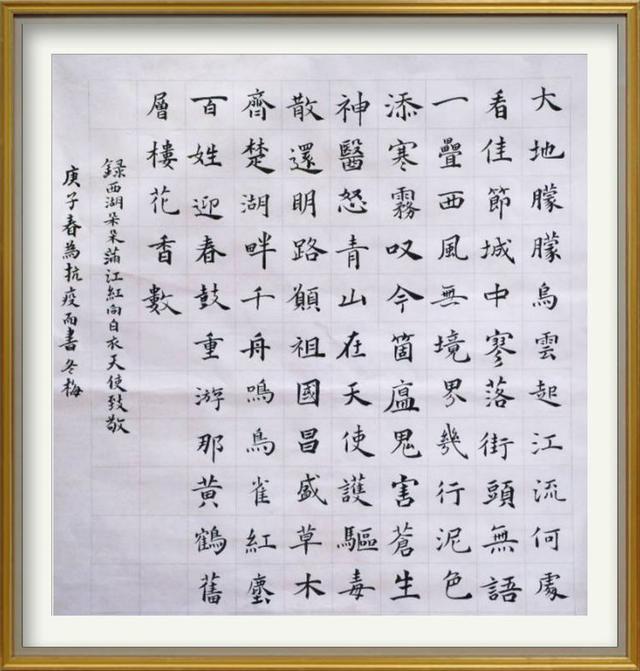 大地朦朦烏雲起江流何處
看佳節城中寥落街頭無語
一疊西風無境界幾行泥色
添寒霧叹今箇瘟鬼害蒼生
神醫怒青山在天使護驅毒
散還明路願祖國昌盛草木
齊楚湖畔千舟鳴鳥雀紅塵
百姓迎春鼓重游那黃鶴舊
層樓花香數
録西湖朵朵蒲江紅向白衣天使致敬
庚子春為抗疫而書冬梅